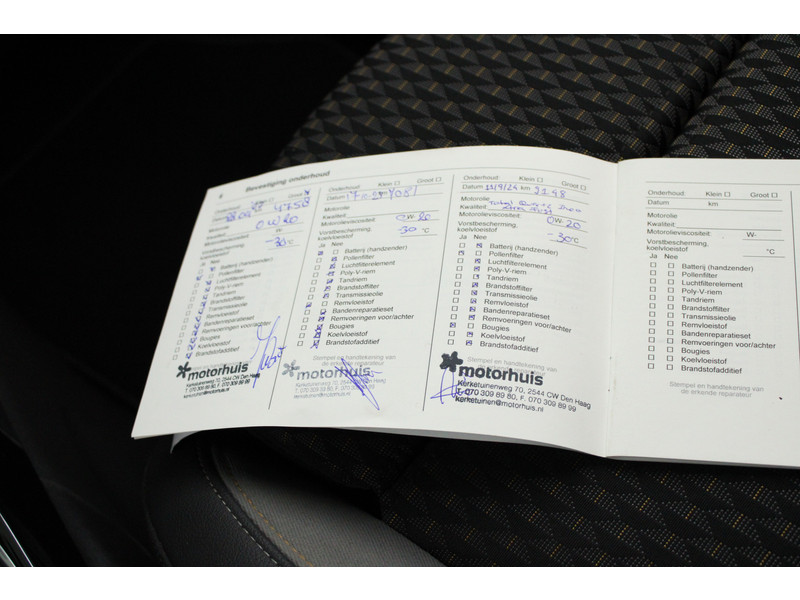 6 Bevestiging onderhoud
Onderhoud: Klein Groot
Motorolie:
0W20
Motorolieviscositeit: W-
Vorstbescherming, koelvloeistof -30 °C
Ja Nee
Batterij (handzender)
Pollenfilter
Luchtfilterelement
Poly-V-riem
Tandriem
Brandstoffilter
Transmissieolie
Remvloeistof
Bandenreparatieset
Remvoeringen voor/achter
Bougies
Koelvloeistof
Brandstofadditief
motorhuis
Kerketuinenweg 70, 2544 CW Den Haag
T. 070 309 89 80, F. 070 309 89 99
kerketuinen@motorhuis.nl
Onderhoud: Klein Groot
Datum
Motorolie
Kwaliteit
Motorolieviscositeit: 0W-20
Vorstbescherming, koelvloeistof -30 °C
Ja Nee
Batterij (handzender)
Pollenfilter
Luchtfilterelement
Poly-V-riem
Tandriem
Brandstoffilter
Transmissieolie
Remvloeistof
Bandenreparatieset
Remvoeringen voor/achter
Bougies
Koelvloeistof
Brandstofadditief
Stempel en handtekening van
motorhuis
Kerketuinenweg 70, 2544 CW Den Haag
T. 070 309 89 80, F. 070 309 89 99
kerketuinen@motorhuis.nl
Onderhoud: Klein Groot
Datum 11/9/24 km
Motorolie
Kwaliteit:
Motorolieviscositeit: 0W-20
Vorstbescherming, koelvloeistof -30 °C
Ja Nee
Batterij (handzender)
Pollenfilter
Luchtfilterelement
Poly-V-riem
Tandriem
Brandstoffilter
Transmissieolie
Remvloeistof
Bandenreparatieset
Remvoeringen voor/achter
Bougies
Koelvloeistof
Brandstofadditief
Stempel en handtekening van
de erkende reparateur
motorhuis
Kerketuinenweg 70, 2544 CW Den Haag
T. 070 309 89 80, F. 070 309 89 99
kerketuinen@motorhuis.nl
Onderhoud: Klein Groot
Datum km
Motorolie
Kwaliteit:
Motorolieviscositeit: W-
Vorstbescherming,
koelvloeistof °C
Ja Nee
Batterij (handzender)
Pollenfilter
Luchtfilterelement
Poly-V-riem
Tandriem
Brandstoffilter
Transmissieolie
Remvloeistof
Bandenreparatieset
Remvoeringen voor/achter
Bougies
Koelvloeistof
Brandstofadditief
Stempel en handtekening van
de erkende reparateur